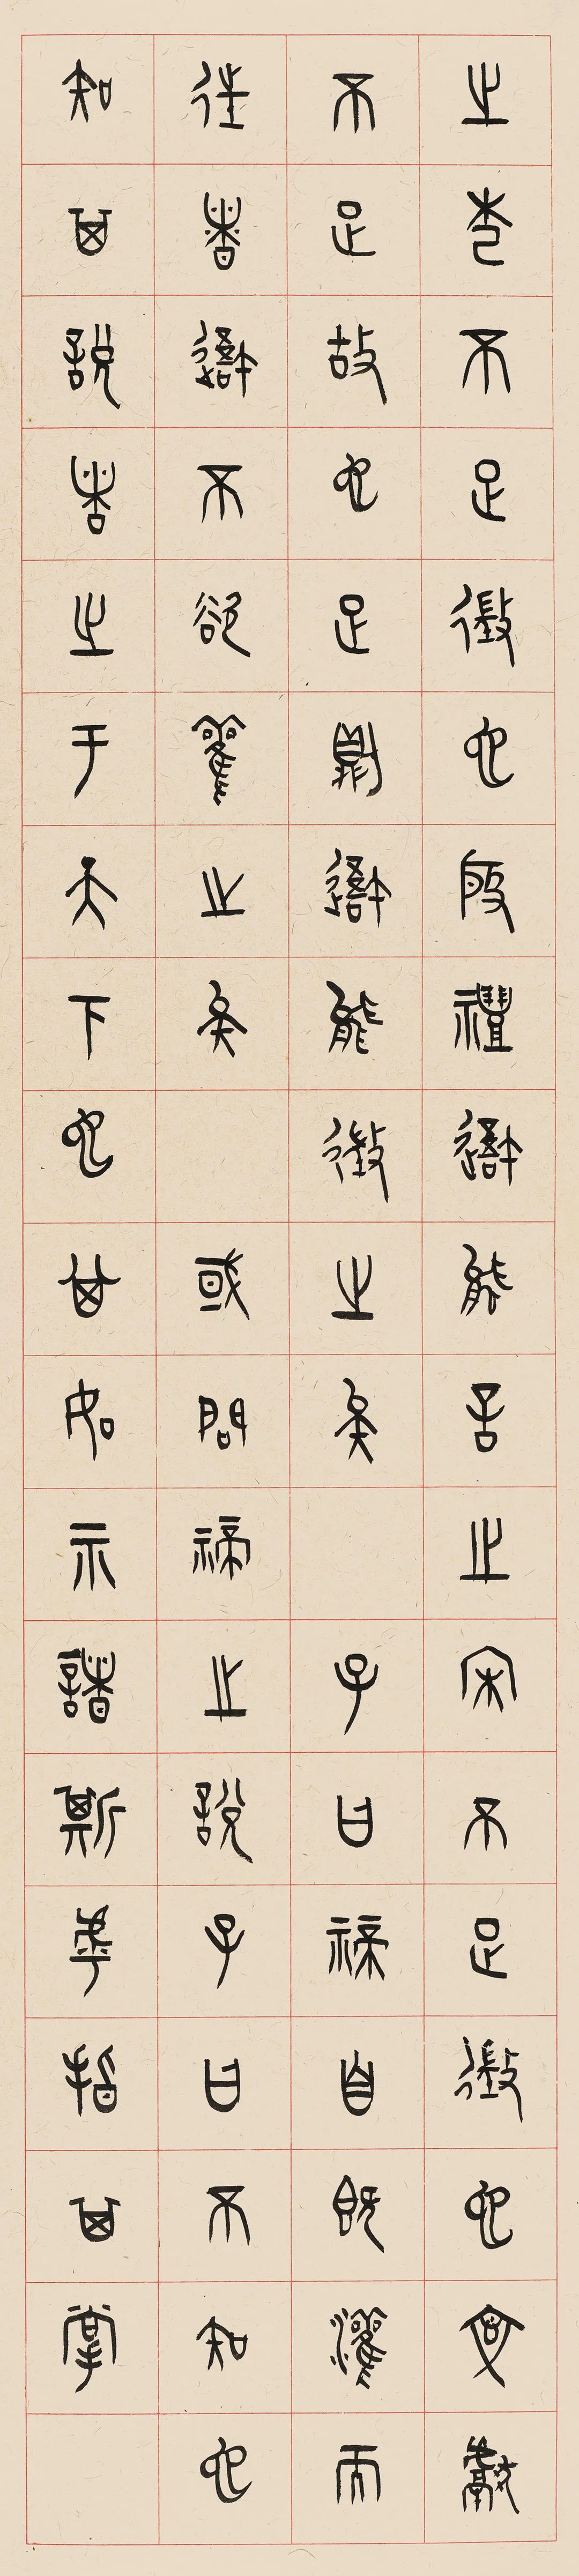 之杞不足徵也殷禮吾能言之宋不足徵也文獻
不足故也足則吾能徵之矣 子曰禘自既灌而
往者吾不欲觀之矣 或問禘之說子曰不知也
知其說者之于天下也其如示諸斯乎指其掌